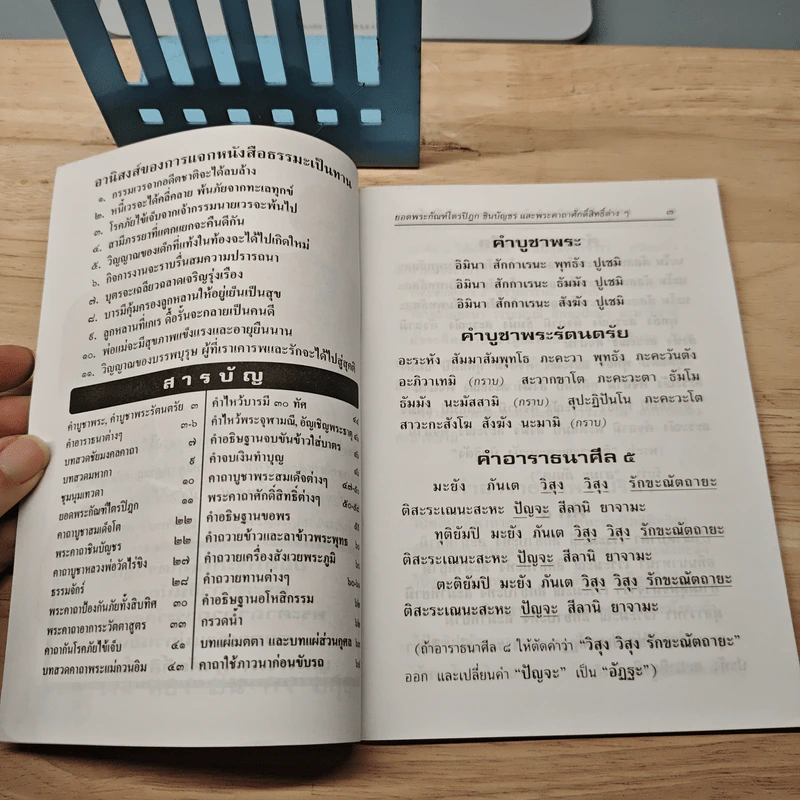 อานิสงส์ของการแจกหนังสือธรรมะเป็นทาน
๑. กรรมเวรจากอดีตชาติจะได้ลบล้าง
๒. หนี้เวรจะได้คลี่คลาย พ้นภัยจากทะเลทุกข์
๓. โรคภัยไข้เจ็บจากเจ้ากรรมนายเวรจะพ้นไป
๔. สามีภรรยาที่แตกแยกจะคืนดีกัน
๕. วิญญาณของเด็กที่แท้งในท้องจะได้ไปเกิดใหม่
๖. กิจการงานจะราบรื่นสมความปรารถนา
๗. บุตรจะเฉลียวฉลาดเจริญรุ่งเรือง
๘. บารมีคุ้มครองลูกหลานให้อยู่เย็นเป็นสุข
๙. ลูกหลานที่เกเร ดื้อรั้นจะกลายเป็นคนดี
๑๐. พ่อแม่จะมีสุขภาพแข็งแรงและอายุยืนนาน
๑๑. วิญญาณของบรรพบุรุษ ผู้ที่เราเคารพและรักจะได้ไปสู่สุคติ
สารบัญ
คำบูชาพระ, คำบูชาพระรัตนตรัย ๓
คำอาราธนาต่างๆ ๓-๖
บทสวดชัยมงคลคาถา ๗
บทสวดมหากา ๙
ชุมนุมเทวดา ๑๐
ยอดพระกัณฑ์ไตรปิฎก ๑๑
คาถาบูชาสมเด็จโต ๒๒
พระคาถาชินบัญชร ๒๒
คาถาบูชาหลวงพ่อวัดไร่ขิง ๒๗
ธรรมจักร์ ๒๘
พระคาถาป้องกันภัยทั้งสิบทิศ ๓๐
พระคาถาอาการะวัตตาสูตร ๓๓
คาถากันโรคภัยไข้เจ็บ ๔๑
บทสวดคาถาพระแม่กวนอิม ๔๓
คำไหว้บารมี ๓๐ ทัศ
คำไหว้พระจุฬามณี, อัญเชิญพระธาตุ
คำอธิษฐานจบขันข้าวใส่บาตร
คำจบเงินทำบุญ
คาถาบูชาพระสมเด็จต่างๆ
พระคาถาศักดิ์สิทธิ์ต่างๆ ๕๐-๕๔
คำอธิษฐานขอพร
คำถวายข้าวและลาข้าวพระพุทธ
คำถวายเครื่องสังเวยพระภูมิ
คำถวายทานต่างๆ
คำอธิษฐานอโหสิกรรม
กรวดน้ำ
บทแผ่เมตตา และบทแผ่ส่วนกุศล
คาถาใช้ภาวนาก่อนขับรถ
ยอดพระกัณฑ์ไตรปิฎก ชินบัญชร และพระคาถาศักดิ์สิทธิ์ต่าง ๆ ๓
คำบูชาพระ
อิมินา สักกาเรนะ พุทธัง ปูเชมิ
อิมินา สักกาเรนะ ธัมมัง ปูเชมิ
อิมินา สักกาเรนะ สังฆัง ปูเชมิ
คำบูชาพระรัตนตรัย
อะระหัง สัมมาสัมพุทโธ ภะคะวา พุทธัง ภะคะวันตัง
อะภิวาเทมิ (กราบ) สะวากขาโต ภะคะวะตา ธัมโม
ธัมมัง นะมัสสามิ (กราบ) สุปะฏิปันโน ภะคะวะโต
สาวะกะสังโฆ สังฆัง นะมามิ (กราบ)
คำอาราธนาศีล ๕
มะยัง ภันเต วิสุง วิสุง รักขะณัตถายะ
ติสะระเณนะสะหะ ปัญจะ สีลานิ ยาจามะ
ทุติยัมปิ มะยัง ภันเต วิสุง วิสุง รักขะณัตถายะ
ติสะระเณนะสะหะ ปัญจะ สีลานิ ยาจามะ
ตะติยัมปิ มะยัง ภันเต วิสุง วิสุง รักขะณัตถายะ
ติสะระเณนะสะหะ ปัญจะ สีลานิ ยาจามะ
(ถ้าอาราธนาศีล ๘ ให้ตัดคำว่า "วิสุง วิสุง รักขะณัตถายะ"
ออก และเปลี่ยนคำ "ปัญจะ" เป็น "อัฏฐะ")